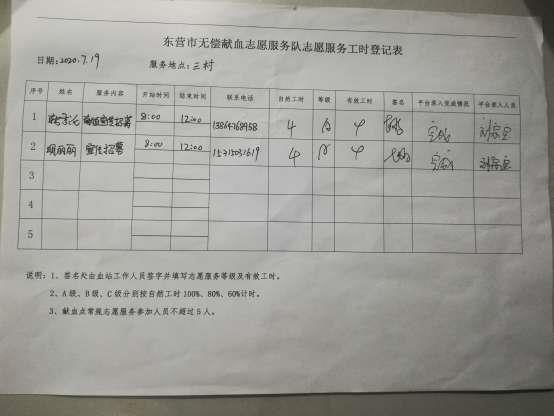 东营市无偿献血志愿服务队志愿服务工时登记表
日期:2020.7.19 服务地点:三村
序号 姓名 服务内容 开始时间 结束时间 联系电话 自然工时 等级 有效工时 签名 平台录入完成情况 平台录入人员
1 宣传招募 8:00 12:00 4 A 4 完成
2 明丽丽 宣传招募 8:00 12:00 4 A 4 完成
3
4
5
说明:1、签名处由血站工作人员签字并填写志愿服务等级及有效工时。
2、A级、B级、C级分别按自然工时100%、80%、60%计时。
3、献血点常规志愿服务参加人员不超过5人。